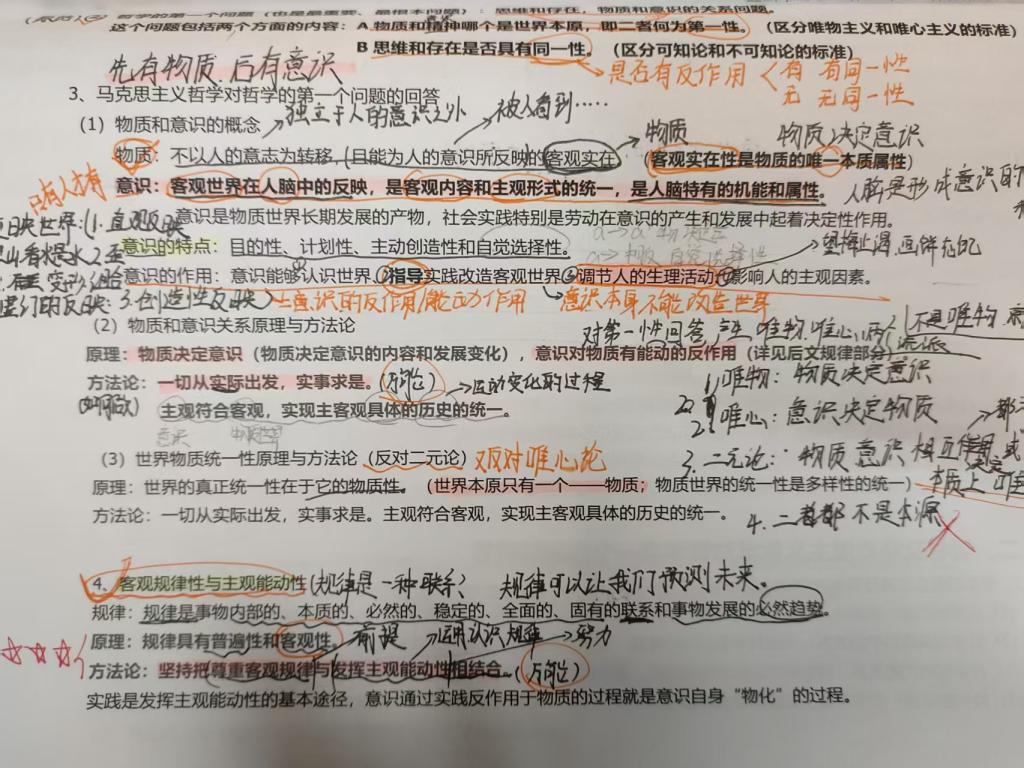 哲学的第一个问题（也是最重要、最根本问题）：思维和存在，物质和意识的关系问题。
这个问题包括两个方面的内容：A 物质和精神哪个是世界本原，即二者何为第一性。（区分唯物主义和唯心主义的标准）
B 思维和存在是否具有同一性。（区分可知论和不可知论的标准）
先有物质 后有意识
是否有反作用
有 有同一性
无 无同一性
3、马克思主义哲学对哲学的第一个问题的回答
独立于人的意识之外
被人看到……
（1）物质和意识的概念
物质
物质决定意识
物质：不以人的意志为转移（且能为人的意识所反映的客观实在（客观实在性是物质的唯一本质属性）
只有人才有
意识：客观世界在人脑中的反映，是客观内容和主观形式的统一，是人脑特有的机能和属性。
人脑是形成意识的
意识是物质世界长期发展的产物，社会实践特别是劳动在意识的产生和发展中起着决定性作用。
映世界：1. 直观反映
意识的特点：目的性、计划性、主动创造性和自觉选择性。
望梅止渴 画饼充饥
意识的作用：意识能够认识世界①②指导实践改造客观世界③调节人的生理活动④影响人的主观因素。
的反映：3. 创造性反映
意识的反作用/能动作用
意识本身不能改造世界
（2）物质和意识关系原理与方法论
对第一性回答产生唯物、唯心两
流派
不是唯物
原理：物质决定意识（物质决定意识的内容和发展变化），意识对物质有能动的反作用（详见后文规律部分）
方法论：一切从实际出发，实事求是。（万能）
运动变化的过程
1. 唯物：物质决定意识
主观符合客观，实现主客观具体的历史的统一。
意识
2. 唯心：意识决定物质
（3）世界物质统一性原理与方法论（反对二元论）
反对唯心论
3. 二元论：物质 意识 相互作用
原理：世界的真正统一性在于它的物质性。（世界本原只有一个——物质；物质世界的统一性是多样性的统一）
本质上
方法论：一切从实际出发，实事求是。主观符合客观，实现主客观具体的历史的统一。
4. 二者都不是本源
4、客观规律性与主观能动性
（规律是一种联系）
规律可以让我们预测未来。
规律：规律是事物内部的、本质的、必然的、稳定的、全面的、固有的联系和事物发展的必然趋势。
原理：规律具有普遍性和客观性。
前提
运用认识规律
努力
方法论：坚持把尊重客观规律与发挥主观能动性相结合。
（万能）
实践是发挥主观能动性的基本途径，意识通过实践反作用于物质的过程就是意识自身“物化”的过程。